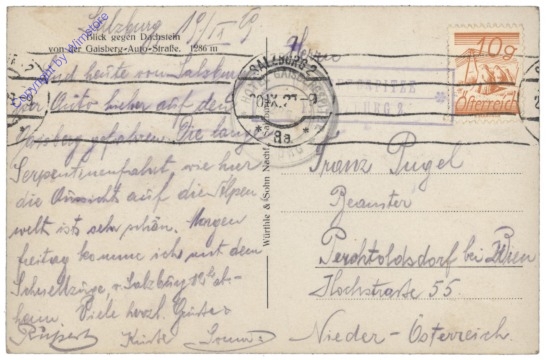 Salzburg 19/IX 29
Blick gegen Dachstein
von der Gaisberg-Auto-Straße. 1286 m
Copyright by Wimstore
Sind heute von Salzburg
per Auto hieher auf den
Gaisberg gefahren. Die lange
Serpentinenfahrt wie hier
die Aussicht auf die Alpen
welt ist sehr schön. Morgen
freitag komme ich mit dem
Schnellzuge v. Salzburg
heim. Viele herzl. Grüße
Rupert
Würthle & Sohn Nachf.
Herrn
SALZBURG 2
20.IX.27
8a
HOTEL GAISBERGSPITZE
10g
Österreich
Franz Pugel
Beamter
Perchtoldsdorf bei Wien
Hochstrasse 55
Nieder-Österreich.